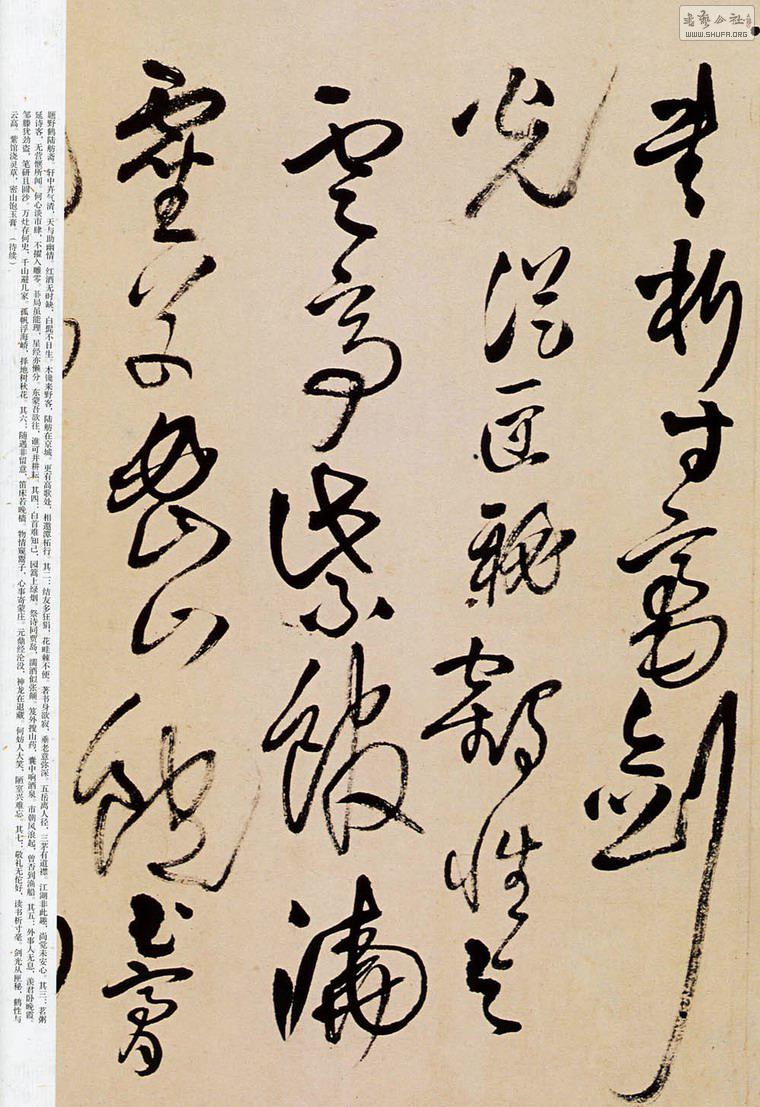 书析寸毫剑
光从匣秘鹤性与
云高紫馆浇
灵草密山饱玉膏
书艺公社
WWW.SHUFA.ORG
题野鹤陆舫斋。轩中卉气清，天与助幽情。红酒无时缺，白髭不日生。木镜来野客，陆舫在京城。更有高歌处，相邀潭柘行。其二：结友多狂狷，花畦棘不便。著书身欲寂，垂老意弥深。五岳离人径，三茅有道襟。江湖非此趣，尚觉未安心。其三：茗粥
延诗客，无营惬所闻。何心谈市肆，不擢入雕零。书局虽能理，星经亦懒分。东蒙吾欲往，谁可并耕耘。其四：白首难知己，园篱上绿烟。祭诗同贾岛，濡酒似张颠。笈外搜山药，囊中响酒泉。市朝风浪起，曾否到渔船。其五：外事人无息，羡君卧晚霞。
邹滕犹劲盗，笔研且圆沙。万灶存何史，千山避几家。孤帆浮海峤，择地树秋花。其六：随遇非留意，笛床若晚樯。物情窥鬻子，心事寄蒙庄。元鼎经沦没，神龙在退藏。何妨人大笑，陋室兴难忘。其七：敬礼无佗好，读书析寸毫。剑光从匣秘，鹤性与
云高。紫馆浇灵草，密山饱玉膏。（待续）